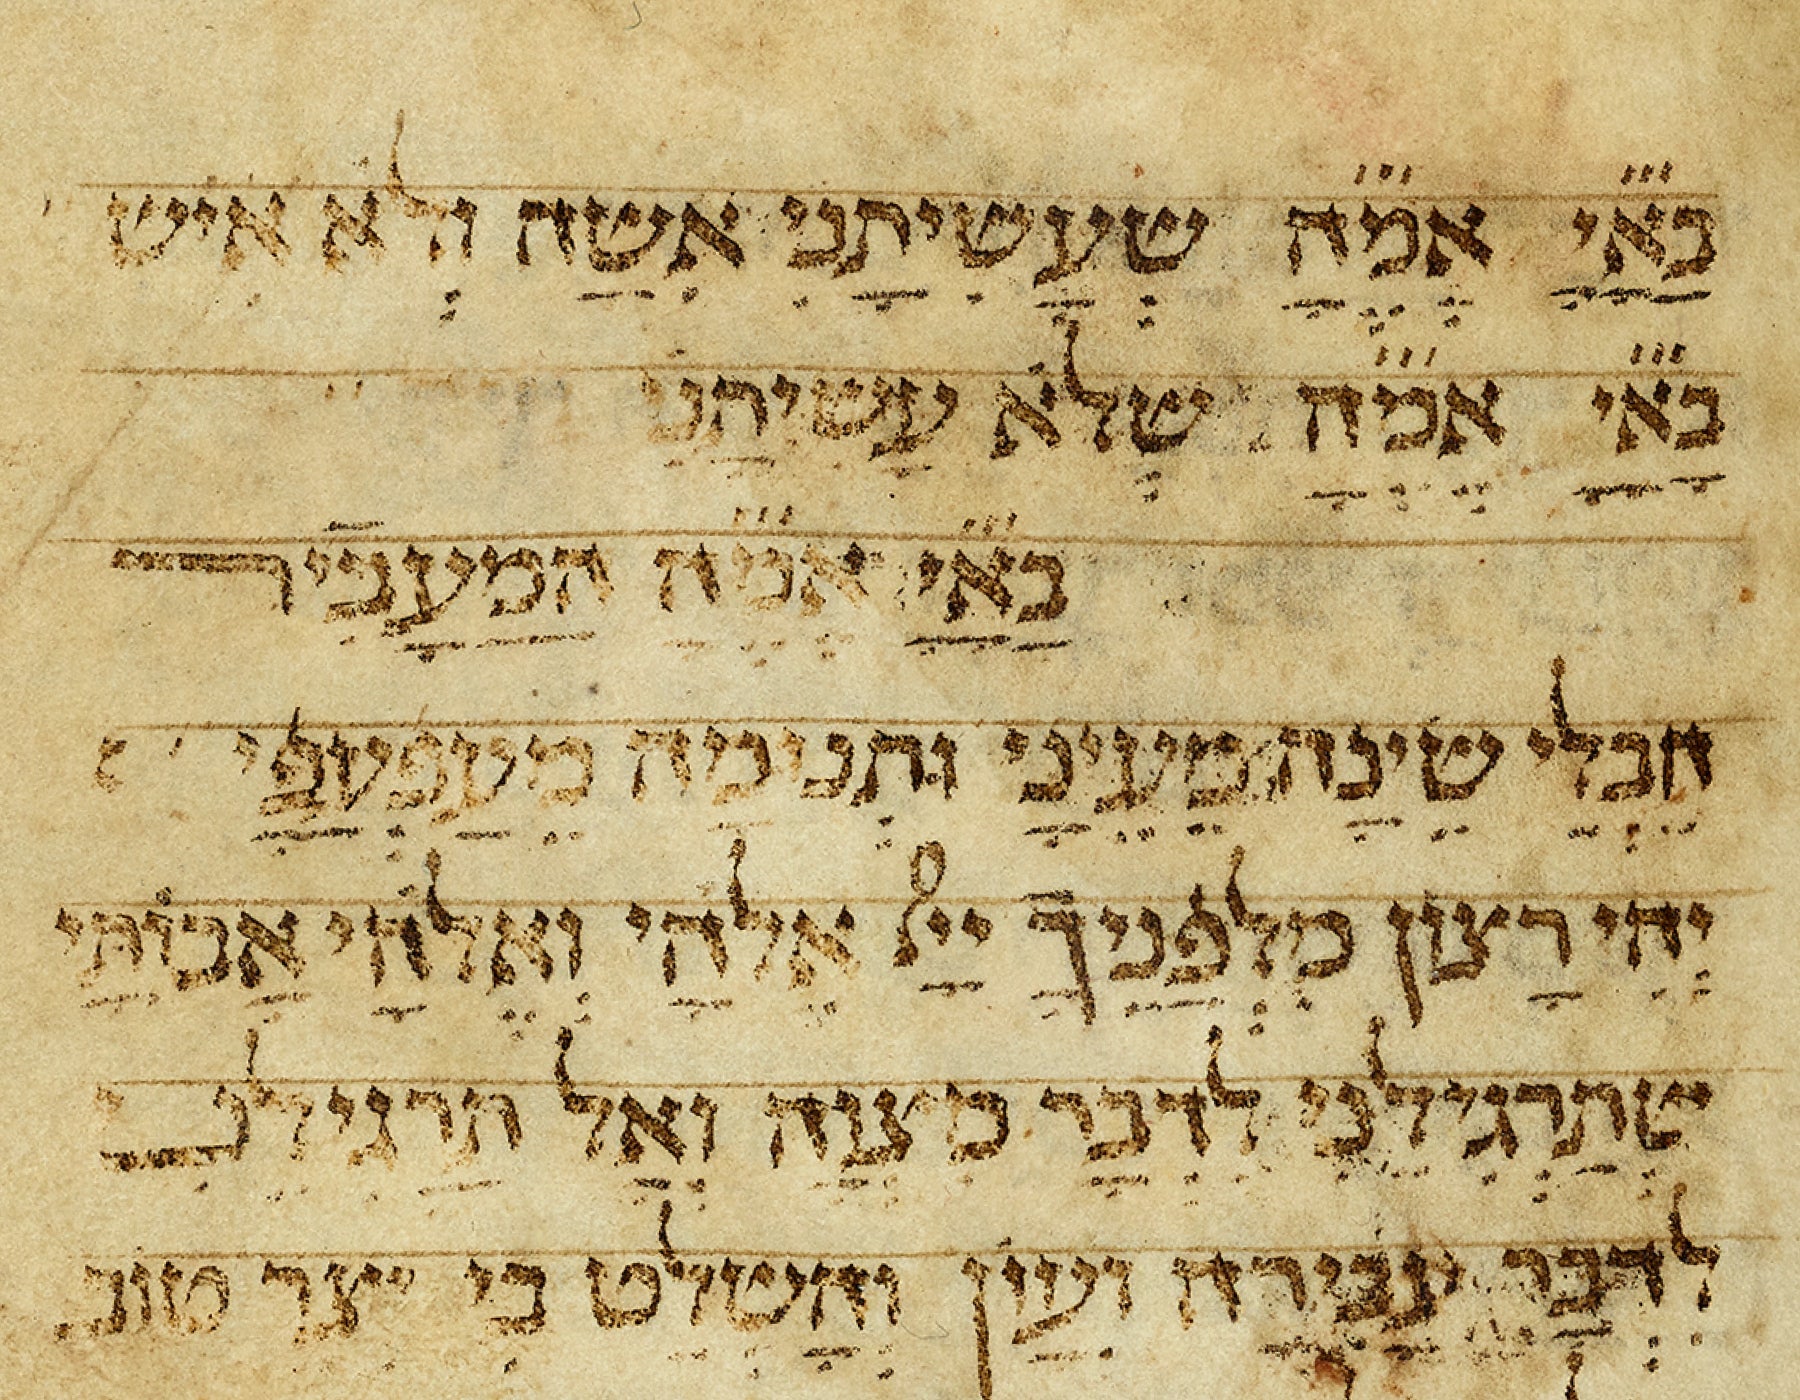 באי אמה שעשיתני אשה ולא איש
באי אמה שלא עשיתני
באי אמה המעביר
חבלי שינה מעיני ותנומה מעפעפי
יהי רצון מלפניך ייי אלהי ואלהי אבותי
שתרגילני לדבר מצוה ואל תרגילני
לדבר עבירה ועון ותשליט בי יצר טוב